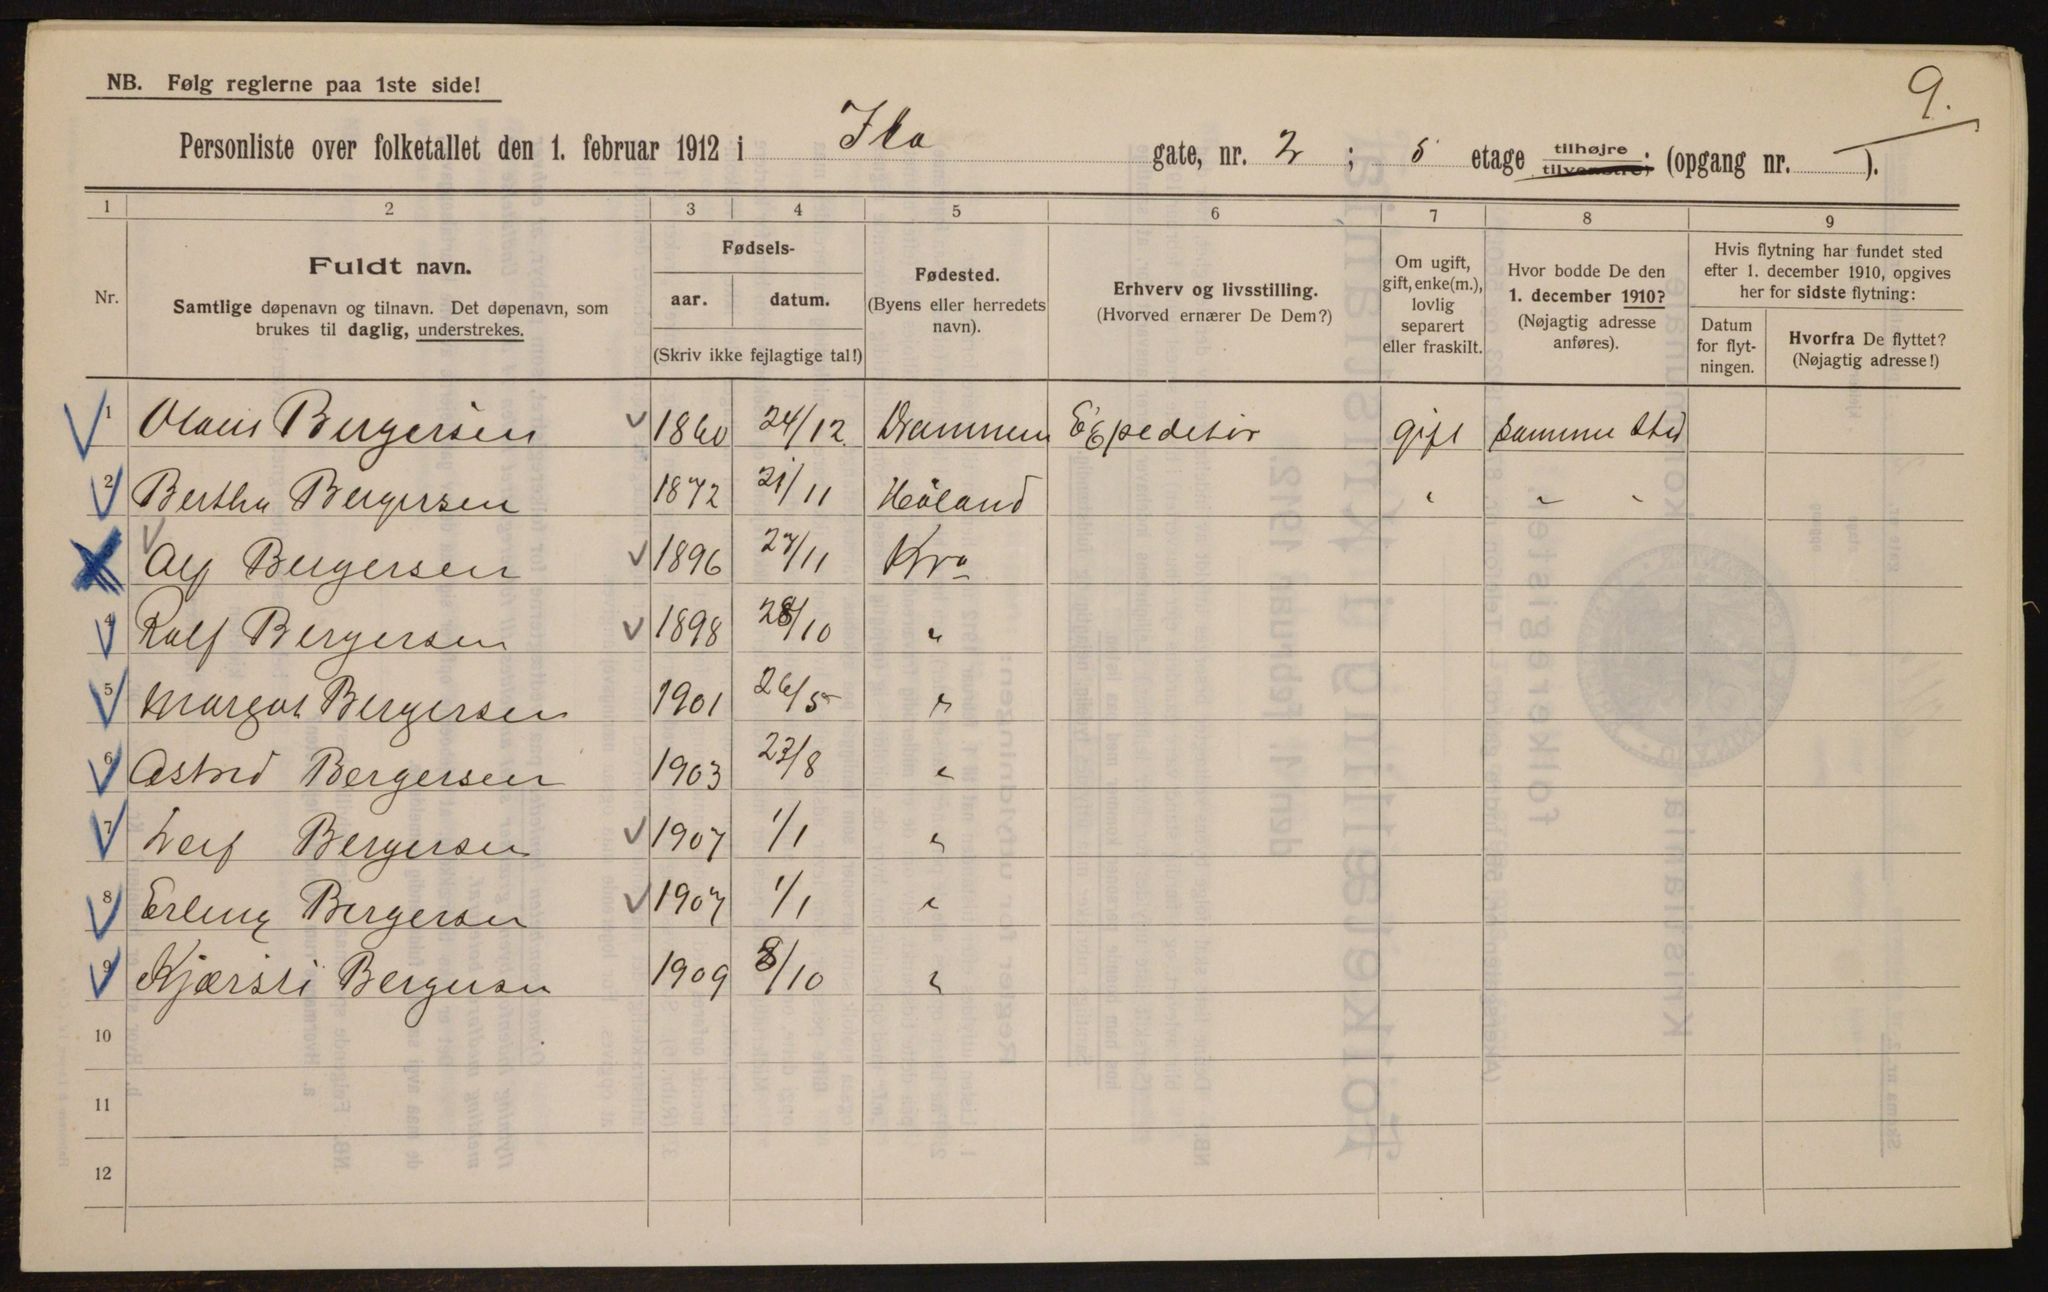 9.
NB. Følg reglerne paa 1ste side!
Personliste over folketallet den 1. februar 1912 i Ila gate, nr. 2 ; 5 etage tilhøjre tilvenstre; (opgang nr. ).
1 2 3 4 5 6 7 8 9
Nr.
Fuldt navn.
Samtlige døpenavn og tilnavn. Det døpenavn, som
brukes til daglig, understrekes.
Fødsels-
aar. datum.
(Skriv ikke fejlagtige tal!)
Fødested.
(Byens eller herredets
navn).
Erhverv og livsstilling.
(Hvorved ernærer De Dem?)
Om ugift,
gift, enke(m.),
lovlig
separert
eller fraskilt.
Hvor bodde De den
1. december 1910?
(Nøjagtig adresse
anføres).
Hvis flytning har fundet sted
efter 1. december 1910, opgives
her for sidste flytning:
Datum
for flyt-
ningen.
Hvorfra De flyttet?
(Nøjagtig adresse!)
1 Olaus Bergersen 1860 24/12 Drammen Expeditør gift samme sted
2 Bertha Bergersen 1872 21/11 Høland " " "
Alf Bergersen 1896 27/11 Kra
4 Rolf Bergersen 1898 28/10 "
5 Margot Bergersen 1901 26/5 "
6 Astrid Bergersen 1903 23/8 "
7 Leif Bergersen 1907 1/1 "
8 Erling Bergersen 1907 1/1 "
9 Kjærsti Bergersen 1909 8/10 "
10
11
12